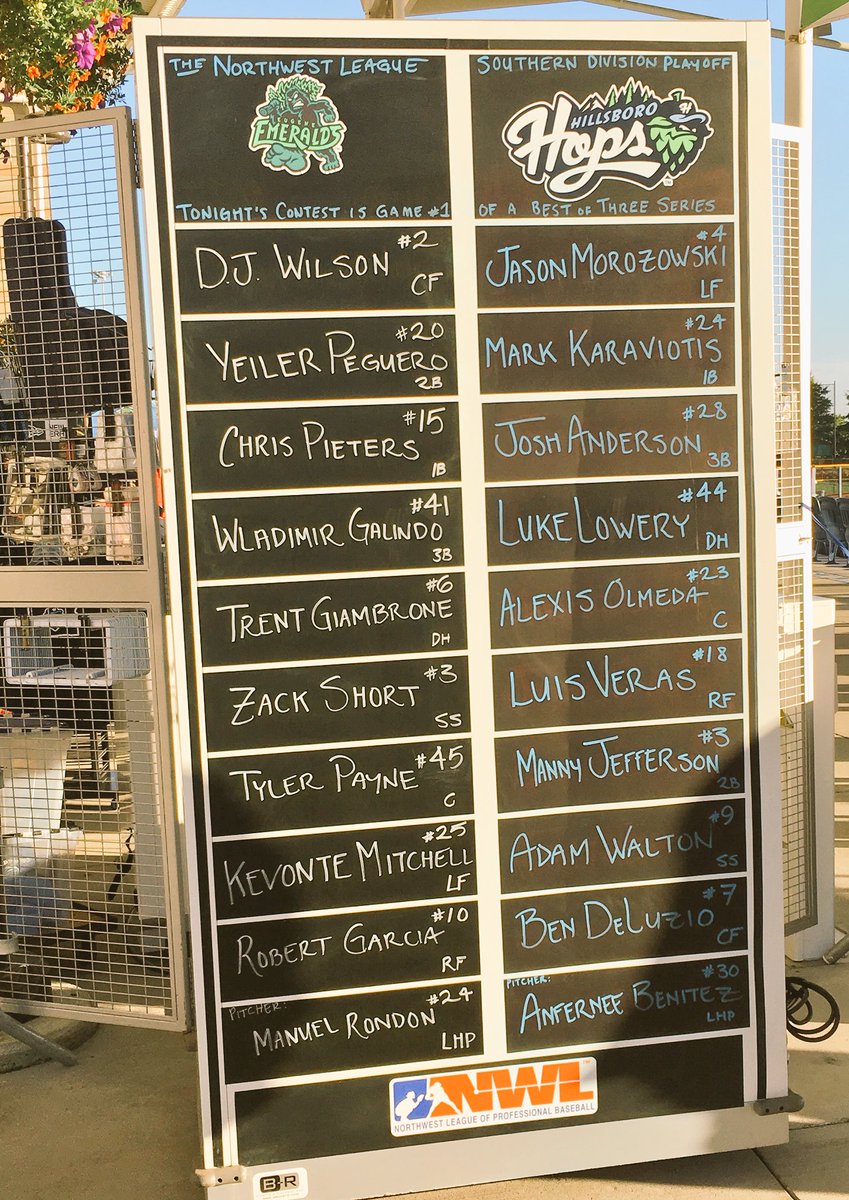 THE NORTHWEST LEAGUE
EUGENE
EMERALDS
TONIGHT'S CONTEST IS GAME #1
#2
D.J. WILSON
CF
#20
YEILER PEGUERO
2B
#15
CHRIS PIETERS
1B
#41
WLADIMIR GALINDO
3B
#6
TRENT GIAMBRONE
DH
#3
ZACK SHORT
SS
#45
TYLER PAYNE
C
#25
KEVONTE MITCHELL
LF
#10
ROBERT GARCIA
RF
PITCHER: #24
MANUEL RONDON
LHP
SOUTHERN DIVISION PLAYOFF
HILLSBORO
Hops
TM
OF A BEST OF THREE SERIES
#4
JASON MOROZOWSKI
LF
#24
MARK KARAVIOTIS
1B
#28
JOSH ANDERSON
3B
#44
LUKE LOWERY
DH
#23
ALEXIS OLMEDA
C
#18
LUIS VERAS
RF
#3
MANNY JEFFERSON
2B
#9
ADAM WALTON
SS
#7
BEN DELUZIO
CF
PITCHER: #30
ANFERNEE BENITEZ
LHP
NWL
NORTHWEST LEAGUE OF PROFESSIONAL BASEBALL
B-R